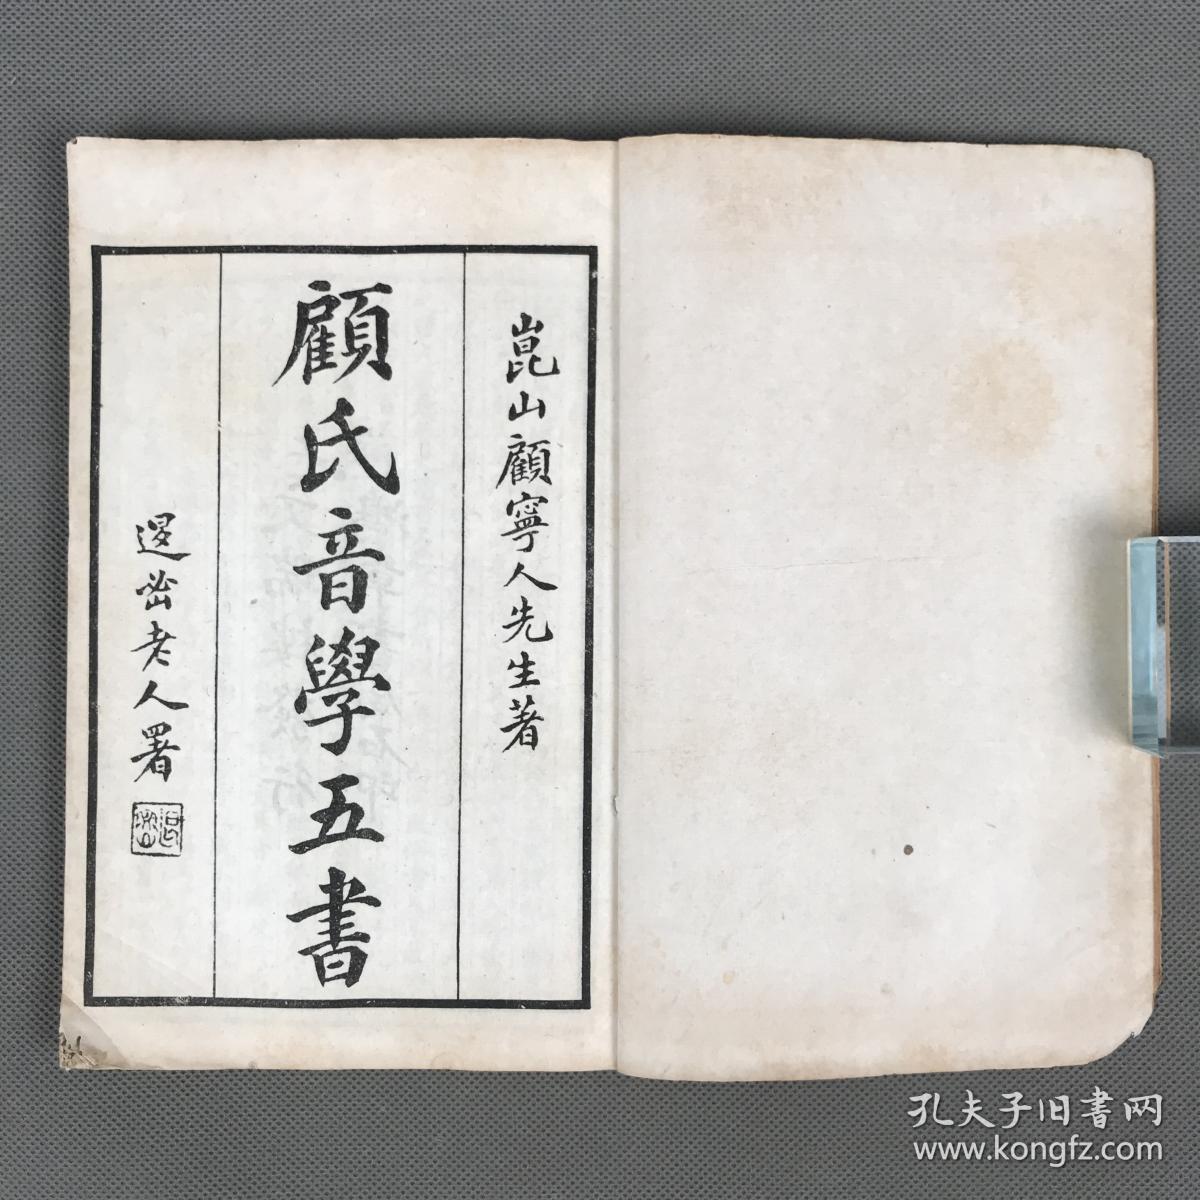 崑山顧寧人先生著
顧氏音學五書
老人署
孔夫子旧书网
www.kongfz.com